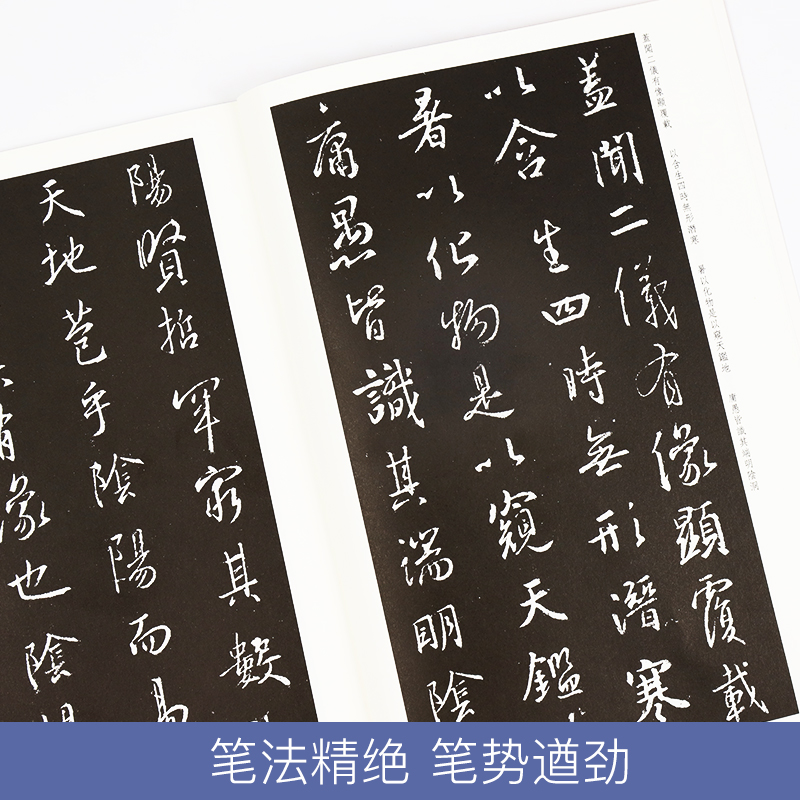 蓋聞二儀有像顯覆載
以含生四時無形潛寒
暑以化物是以窺天鑑地
庸愚皆識其端明陰洞
蓋聞二儀有像顯覆載
以含生四時無形潛寒
暑以化物是以窺天鑑
庸愚皆識其端明陰
陽賢哲罕窮其數
天地苞乎陰陽而易
有像也陰
笔法精绝 笔势遒劲